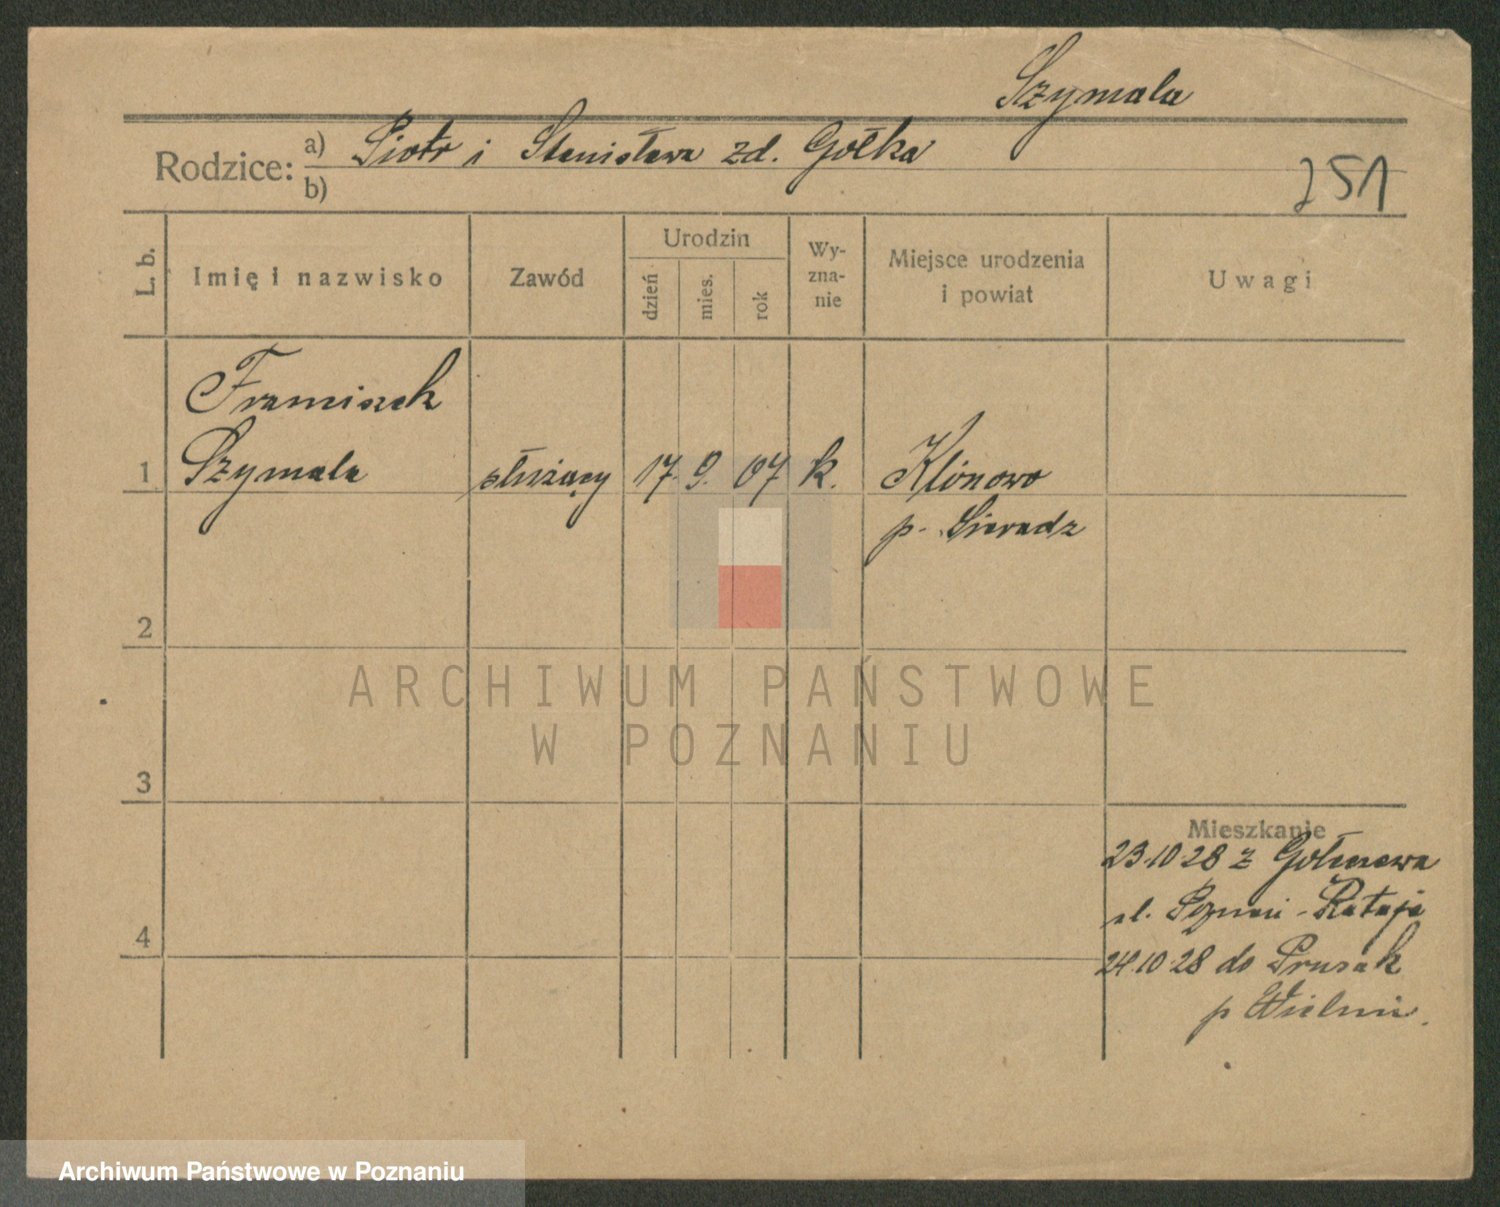 Szymala
Rodzice: a) Piotr i Stanisława zd. Gołka
b)
251
L. b.
Imię i nazwisko
Zawód
Urodzin
dzień
mies.
rok
Wy-
zna-
nie
Miejsce urodzenia
i powiat
Uwagi
Franciszek
1 Szymala służący 17. 9. 07 k. Klonowo
p. Sieradz
2
ARCHIWUM PAŃSTWOWE
W POZNANIU
3
Mieszkanie
23.10.28 z
ul. Poznań - Rataje
4
24.10.28 do Prusak
p Wieluń
Archiwum Państwowe w Poznaniu